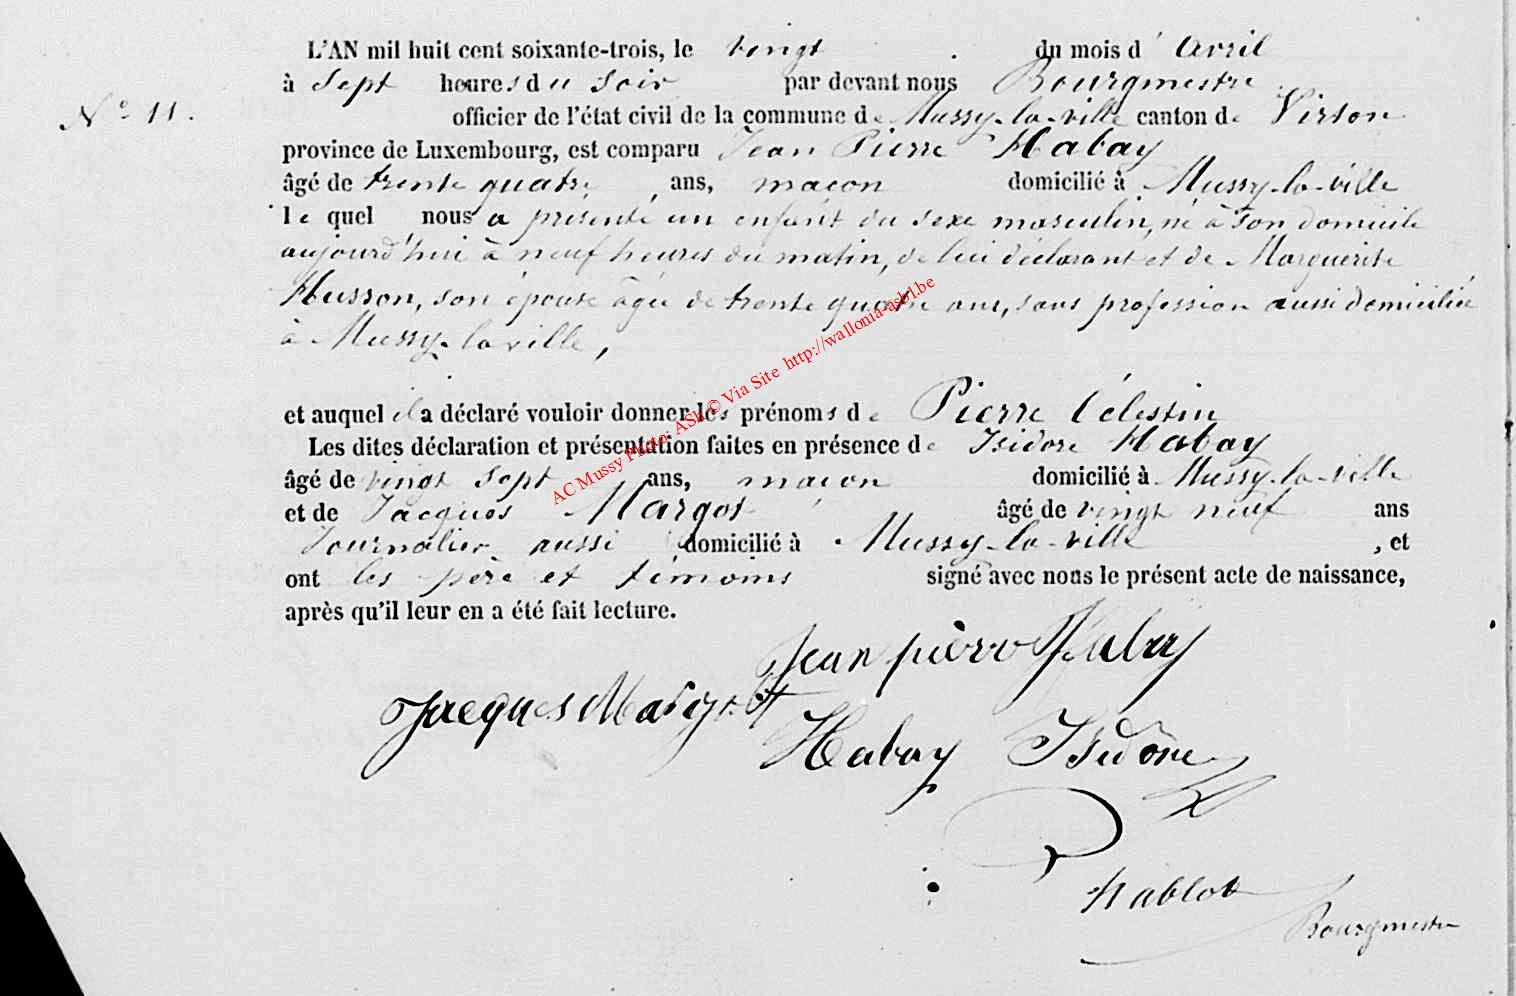 L'AN mil huit cent soixante-trois, le vingt du mois d' avril
à sept heures du soir par devant nous Bourgmestre
N° 11.
officier de l'état civil de la commune de Mussy-la-ville canton de Virton
province de Luxembourg, est comparu Jean Pierre Habay
âgé de trente quatre ans, maçon domicilié à Mussy-la-ville
le quel nous a présenté un enfant du sexe masculin, né à son domicile
aujourd'hui à neuf heures du matin, de lui déclarant et de Marguerite
Husson, son épouse âgée de trente quatre ans, sans profession aussi domiciliée
à Mussy-la ville,
et auquel il a déclaré vouloir donner les prénoms de Pierre Célestin
Les dites déclaration et présentation faites en présence de Isidore Habay
âgé de vingt sept ans, maçon domicilié à Mussy-la-ville
et de Jacques Margot âgé de vingt neuf ans
Journalier aussi domicilié à Mussy-la-ville, et
ont les père et témoins signé avec nous le présent acte de naissance,
après qu'il leur en a été fait lecture.
Jean pierre Habay
Jacques Margot
Habay Isidore
Bourgmestre
AC Mussy Photo: ASBL © Via Site http://wallonia-asbl.be